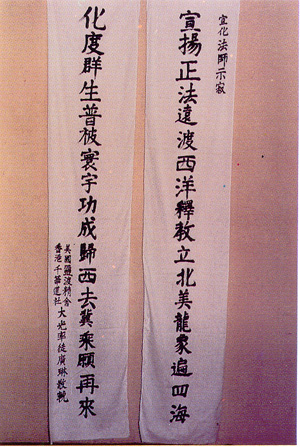 宣化法師示寂
宣揚正法遠渡西洋釋教立北美龍象遍四海
化度群生普被寰宇功成歸西去冀乘願再來
美國鹽波精舍
香港千華蓮社
大光率徒廣琳敬輓